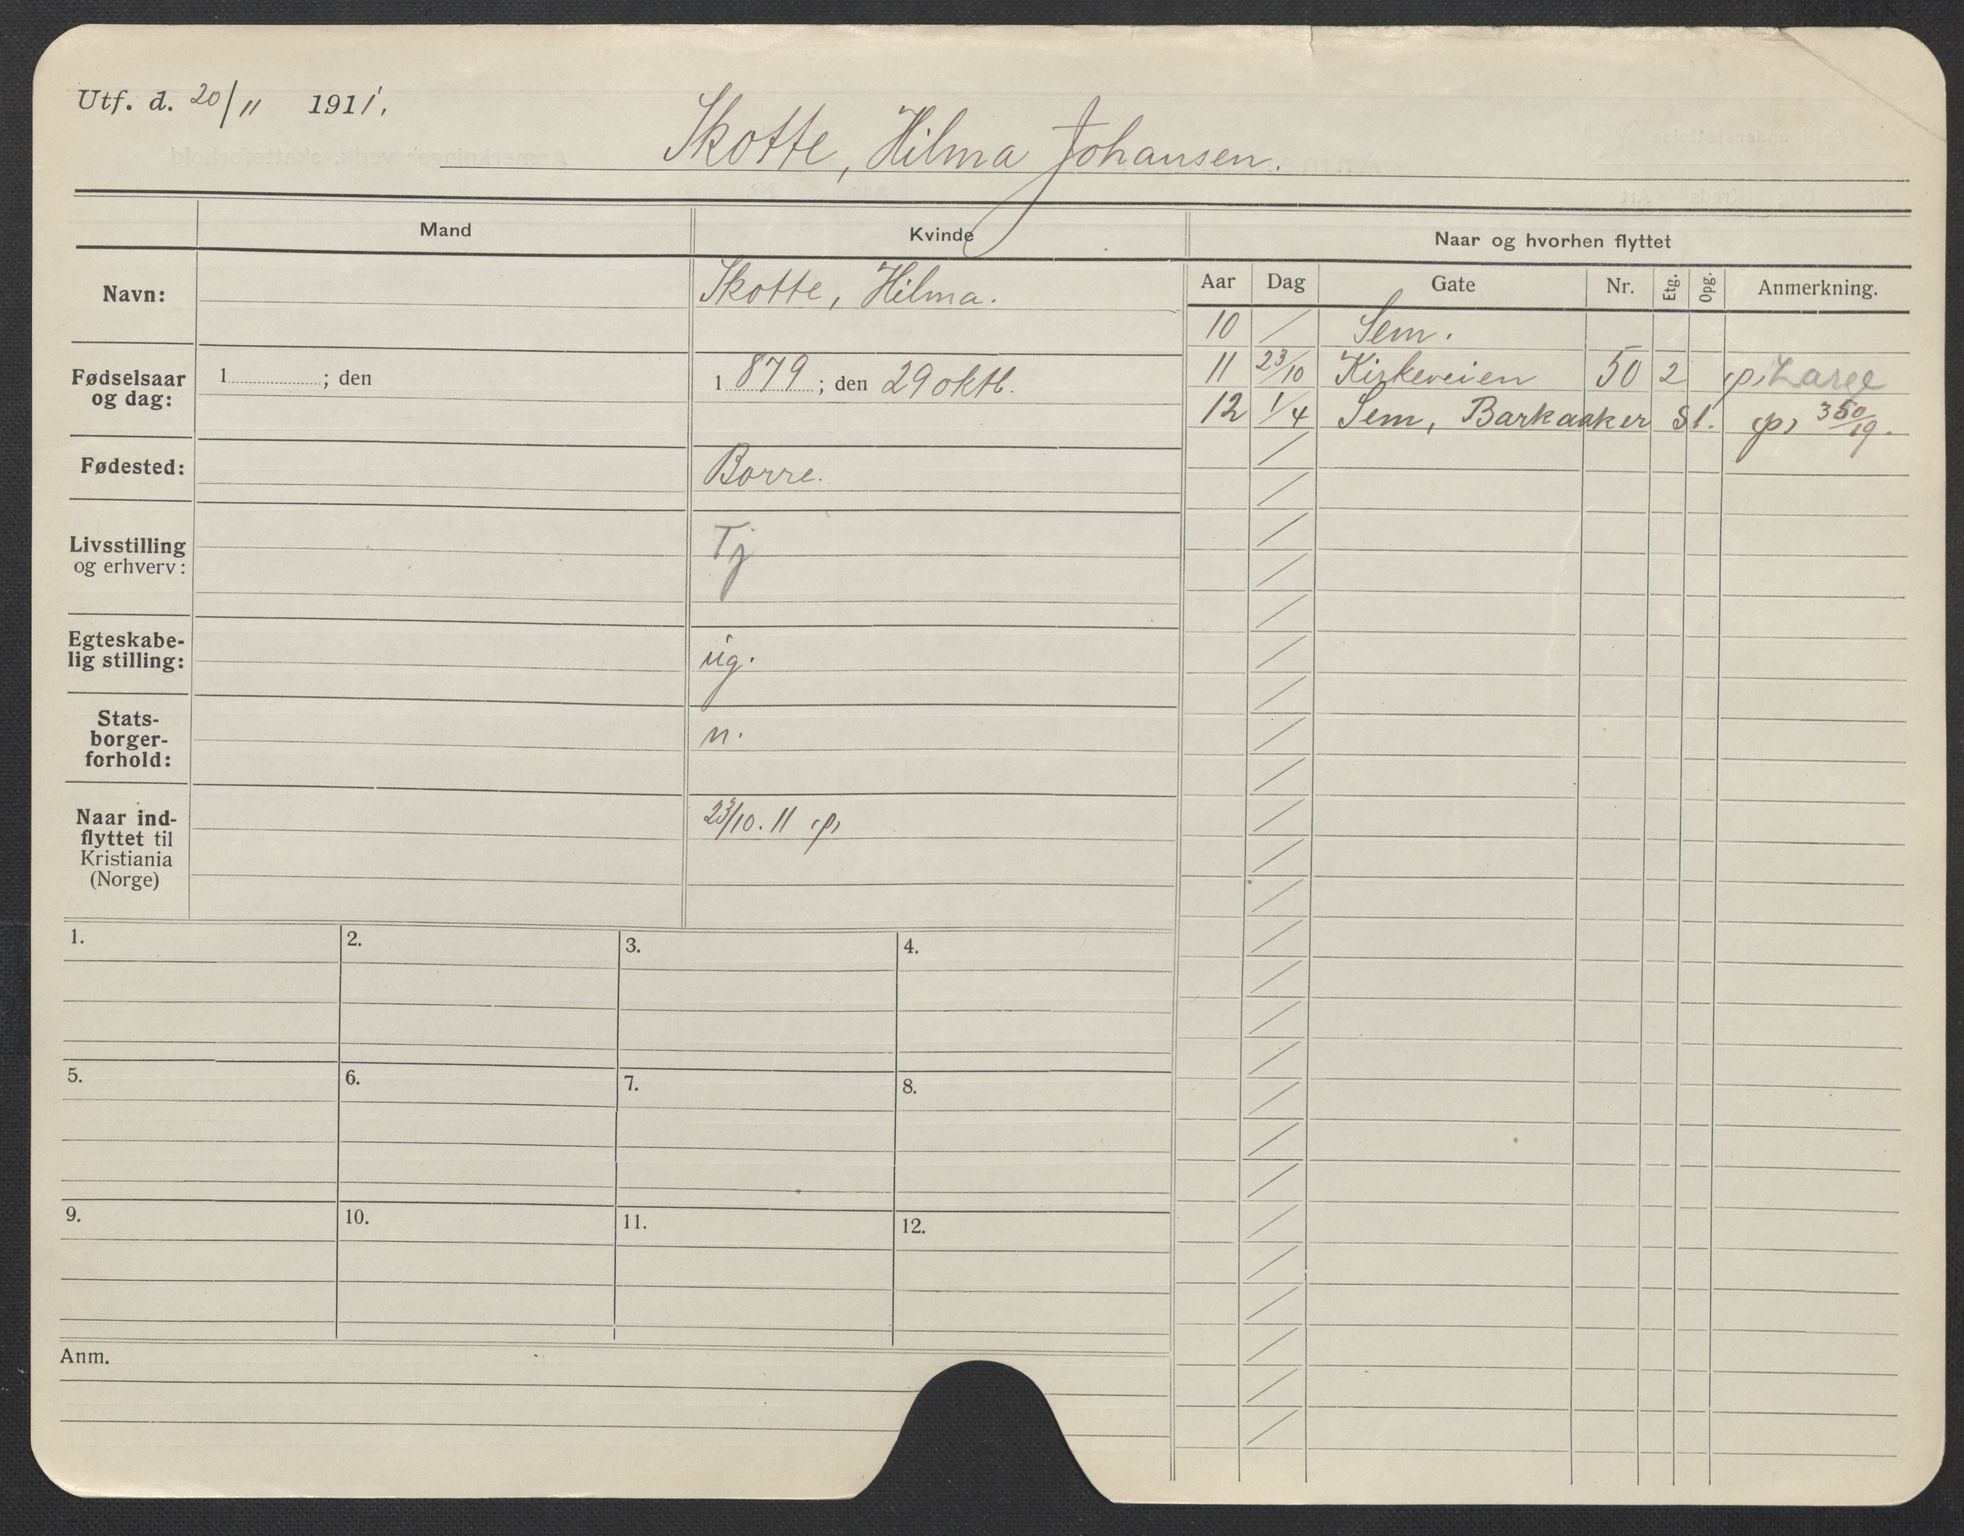 Utf. d. 20/11 1911.
Skotte, Hilma Johansen.
Mand
Kvinde
Naar og hvorhen flyttet
Aar Dag Gate Nr. Etg. Opg. Anmerkning.
Navn: Skotte, Hilma.
Fødselsaar og dag: 1 ; den 1 879 ; den 29 oktb.
Fødested: Borre.
Livsstilling og erhverv: Tj
Egteskabelig stilling: ug.
Statsborgerforhold: n.
Naar indflyttet til Kristiania (Norge) 23/10. 11 (p)
10 / Sem.
11 23/10 Kirkeveien 50 2 (p) Lasse
12 1/4 Sem, Barkaaker St. (p) 350/19.
1.
2.
3.
4.
5.
6.
7.
8.
9.
10.
11.
12.
Anm.